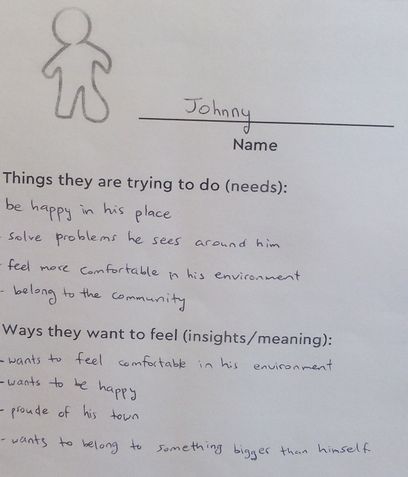 Johnny
Name
Things they are trying to do (needs):
be happy in his place
- solve problems he sees around him
- feel more comfortable in his environment
- belong to the community
Ways they want to feel (insights/meaning):
- wants to feel comfortable in his environment
- wants to be happy
- proude of his town
- wants to belong to something bigger than himself